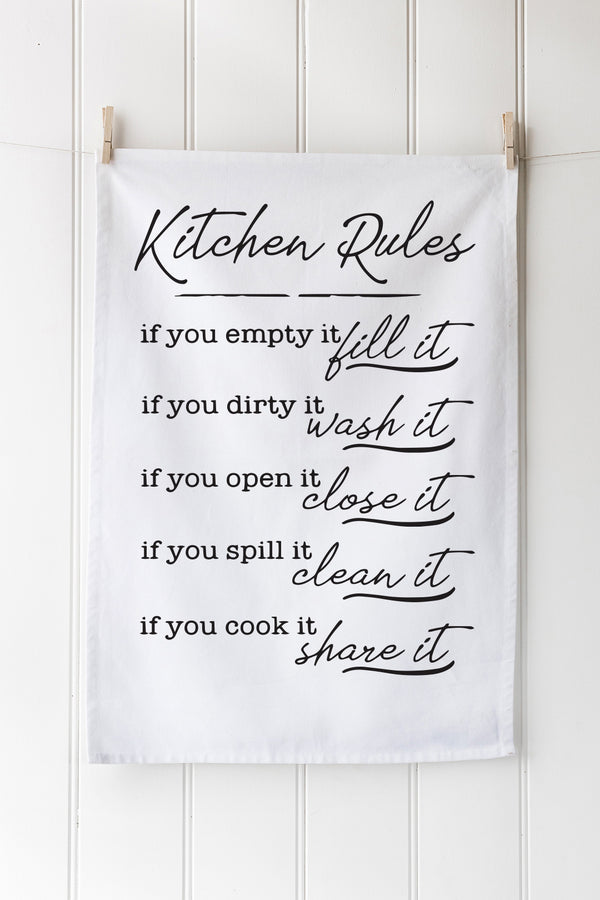 Kitchen Rules
if you empty it fill it
if you dirty it wash it
if you open it close it
if you spill it clean it
if you cook it share it